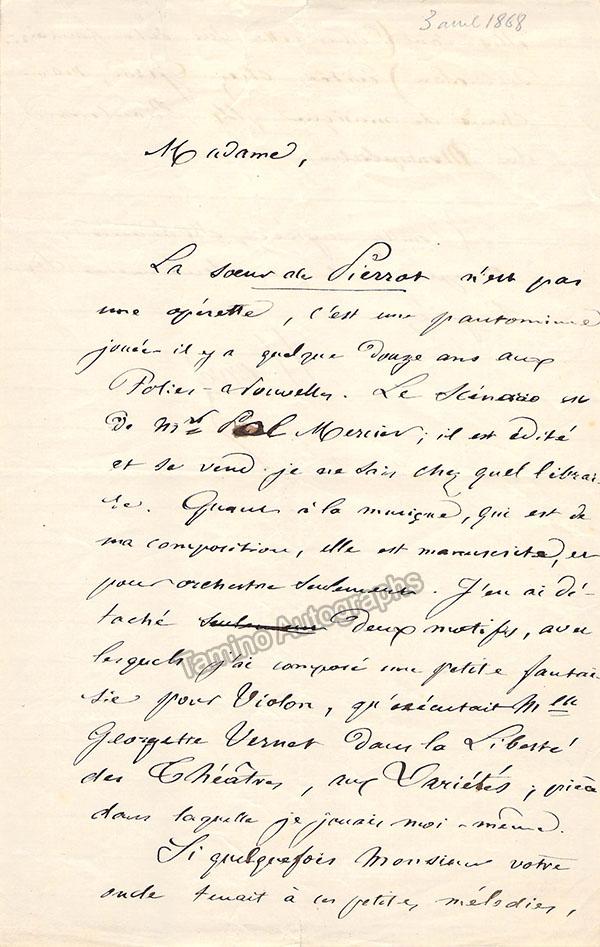 3 avril 1868
Madame,
La sœur de Pierrot n'est pas
une opérette, c'est une pantomime
jouée il y a quelque douze ans aux
Folies-Nouvelles. Le Scénario est
de Mr Pol Mercier; il est édité
et se vend je ne sais chez quel librai-
re. Quant à la musique, qui est de
ma composition, elle est manuscrite, et
pour orchestre seulement. J'en ai dé-
taché seulement deux motifs, avec
lesquels j'ai composé une petite fantai-
sie pour Violon, qu'exécutait Mlle
Georgette Vernet dans la Liberté
des Théâtres, aux Variétés; pièce
dans laquelle je jouais moi-même.
Si quelquefois Monsieur votre
oncle tenait à ces petites mélodies,
Tamino Autographs